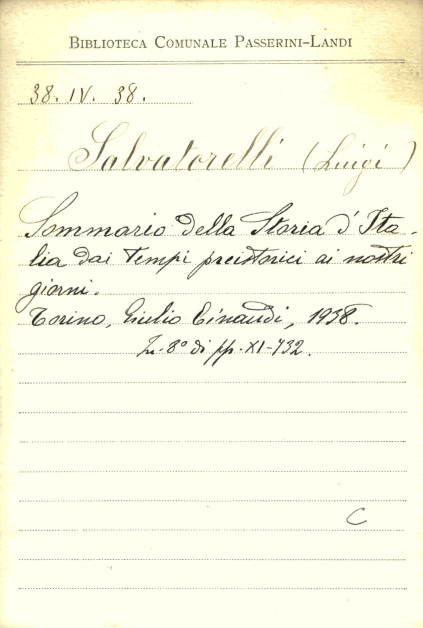 BIBLIOTECA COMUNALE PASSERINI-LANDI
38. IV. 38.
Salvatorelli (Luigi)
Sommario della Storia d'Ita-
lia dai tempi preistorici ai nostri
giorni.
Torino, Giulio Einaudi, 1938.
In-8° di pp. XI-732.
C